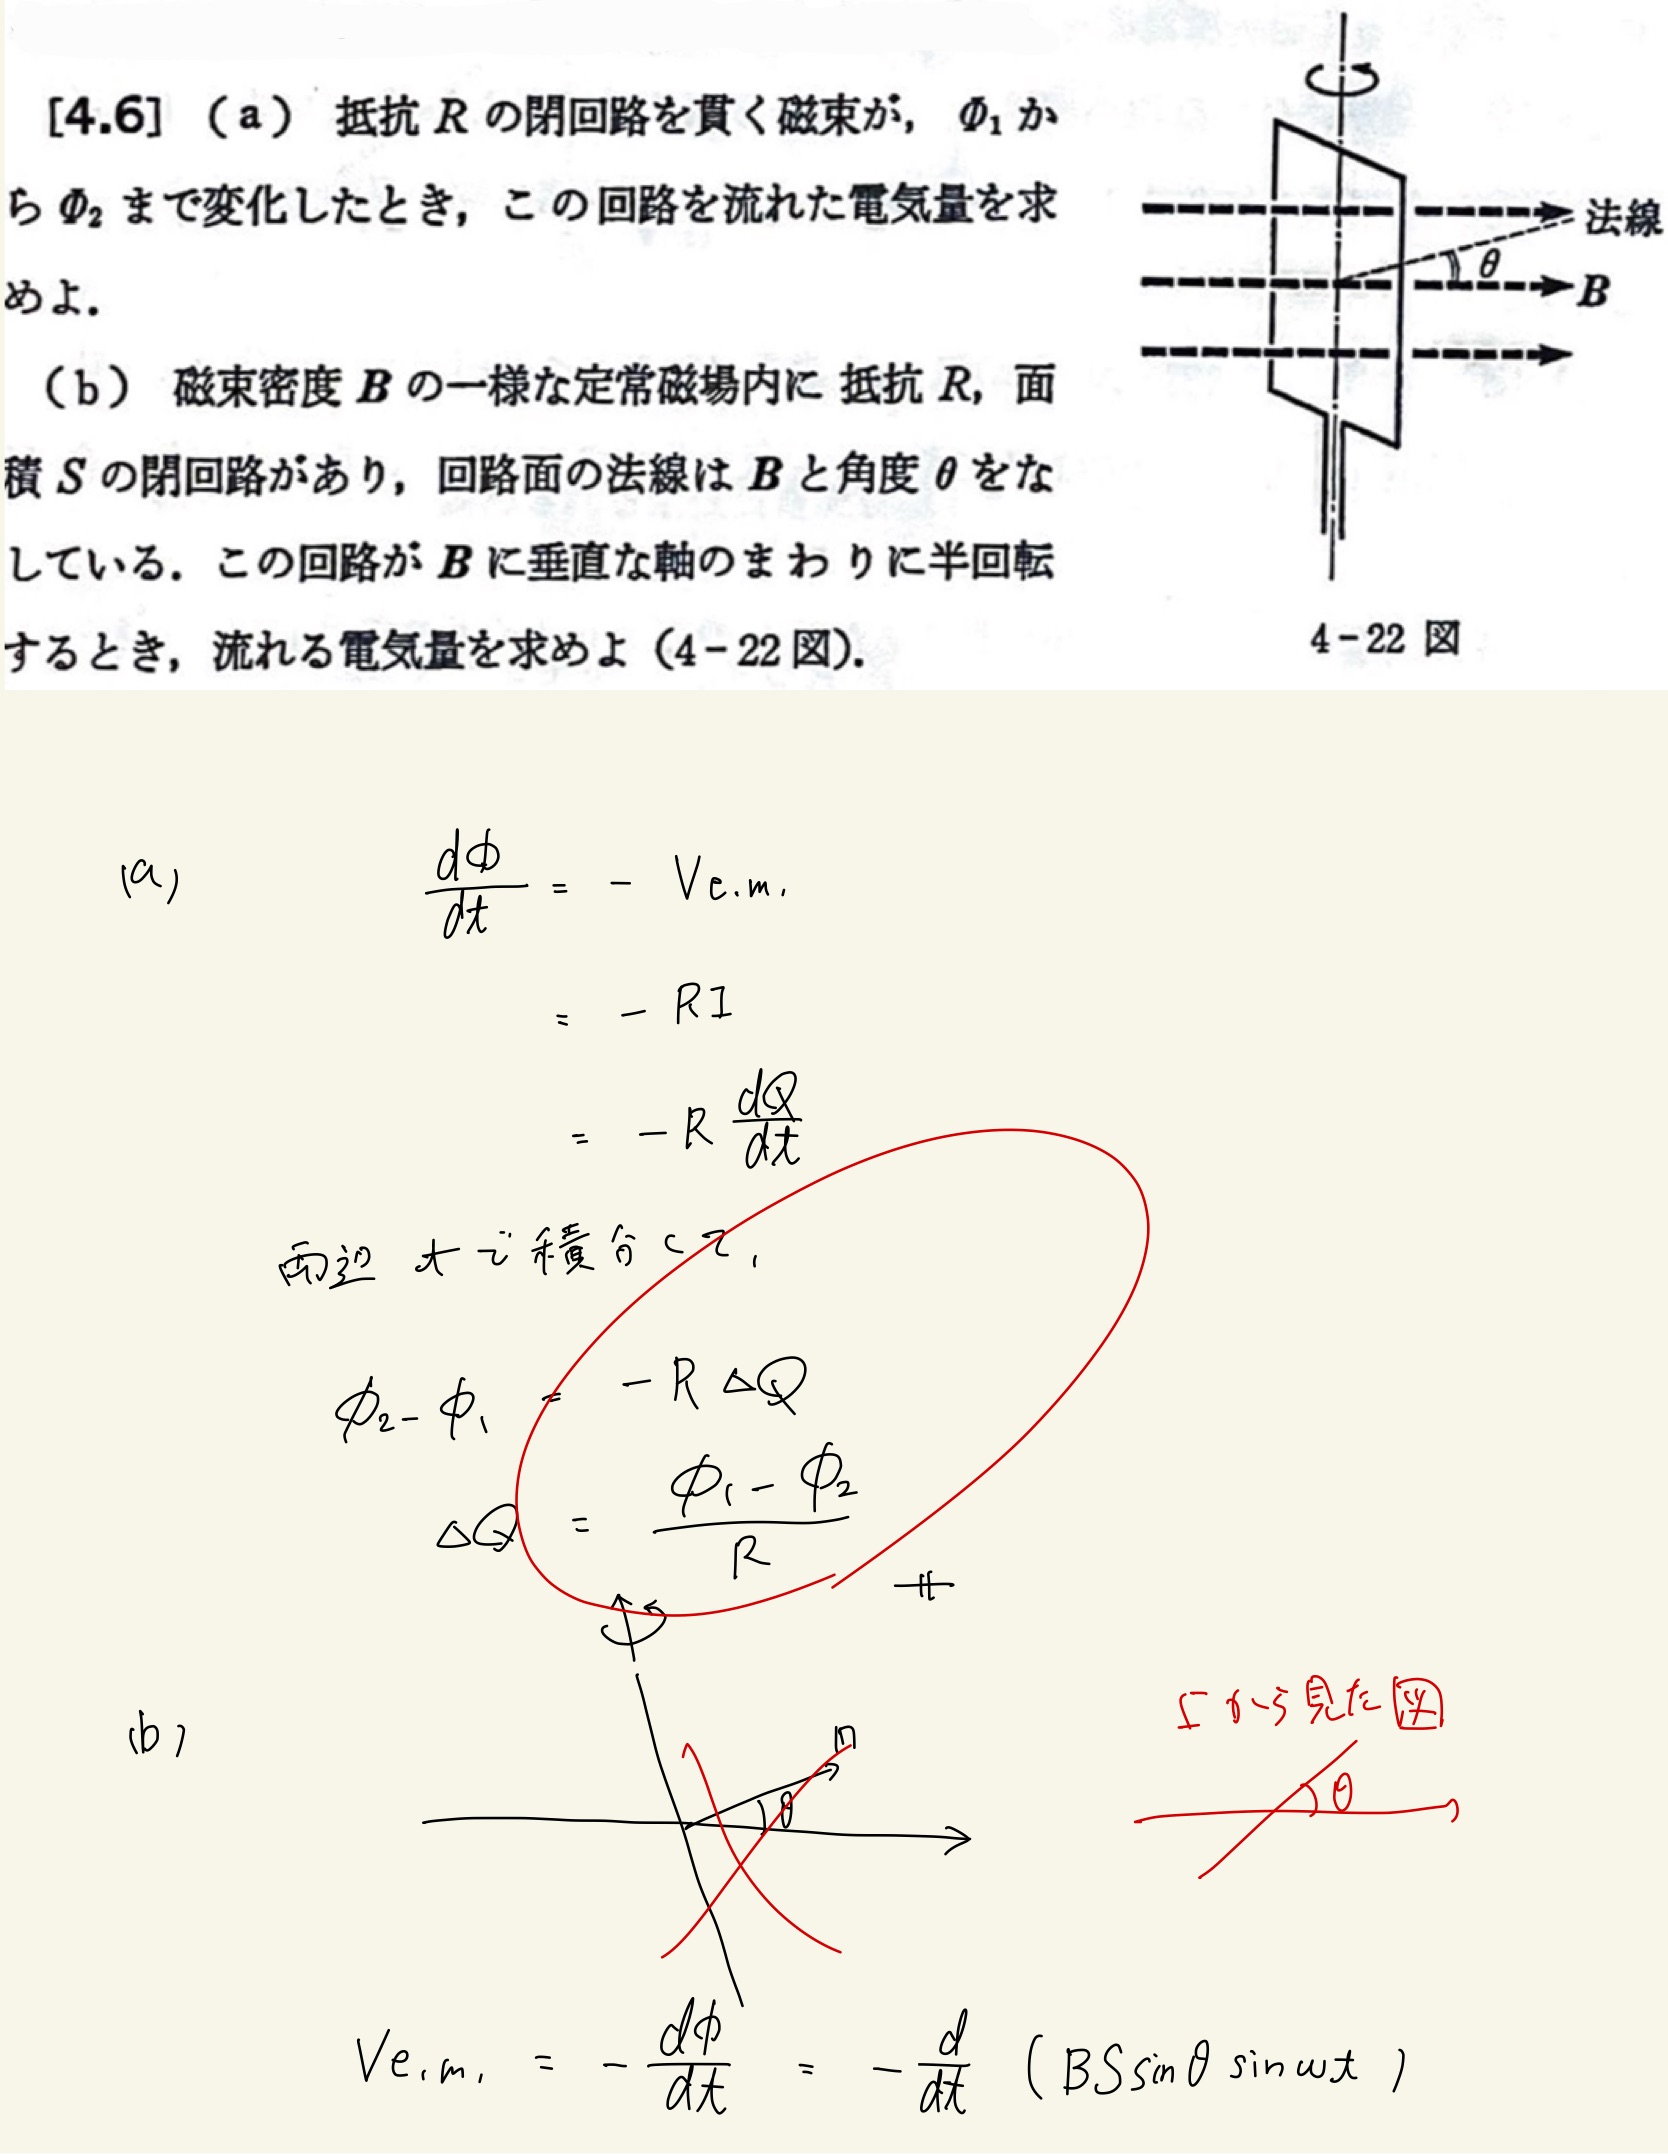 [4.6] (a) 抵抗 R の閉回路を貫く磁束が, Φ₁ か
ら Φ₂ まで変化したとき, この回路を流れた電気量を求
めよ.
(b) 磁束密度 B の一様な定常磁場内に 抵抗 R, 面
積 S の閉回路があり, 回路面の法線は B と角度 θ をな
している. この回路が B に垂直な軸のまわりに半回転
するとき, 流れる電気量を求めよ (4-22 図).
法線
θ
B
4-22 図
(a) dΦ/dt = - Ve.m.
= - RI
= - R dQ/dt
両辺 t で積分して,
Φ₂ - Φ₁ = - R ΔQ
ΔQ = (Φ₁ - Φ₂)/R
(b)
n
θ
上から見た図
θ
Ve.m. = - dΦ/dt = - d/dt (BS sinθ sinωt)